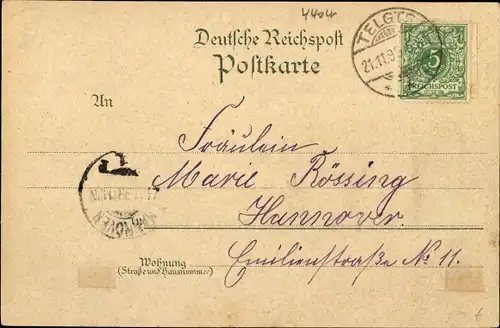 4404
Deutsche Reichspost
Postkarte
TELGTE
21.11.9
5
REICHSPOST
An
Fräulein
Marie Rössing
Hannover
HANNOVER
Emilienstraße No 11.
Wohnung
(Straße und Hausnummer)